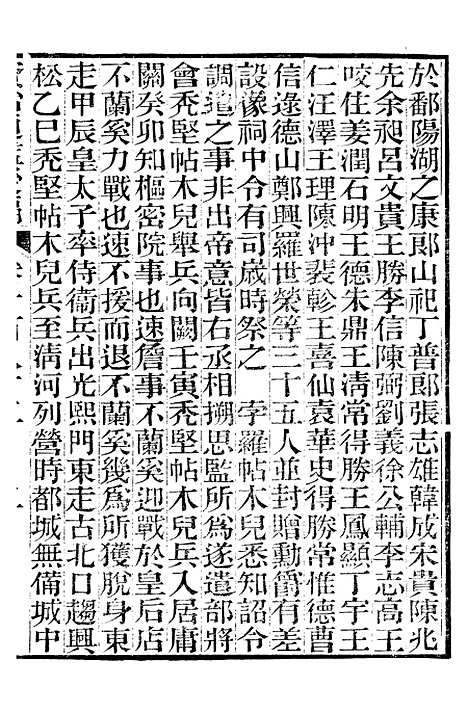 於鄱陽湖之康郞山祀丁普郞張志雄韓成宋貴陳兆
先余昶呂文貴王勝李信陳弼劉義徐公輔李志高王
咬住姜潤石明王德朱鼎王淸常得勝王鳳顯丁宇王
仁汪澤王理陳沖裴軫王喜仙袁華史得勝常惟德曹
信逯德山鄭興羅世榮等三十五人並封贈勳爵有差
設像祠中令有司歲時祭之　孛羅帖木兒悉知詔令
調遣之事非出帝意皆右丞相搠思監所爲遂遣部將
會禿堅帖木兒舉兵向闕壬寅禿堅帖木兒兵入居庸
關癸卯知樞密院事也速詹事不蘭奚迎戰於皇后店
不蘭奚力戰也速不援而退不蘭奚幾爲所獲脫身東
走甲辰皇太子率侍衞兵出光熙門東走古北口趨興
松乙巳禿堅帖木兒兵至淸河列營時都城無備城中